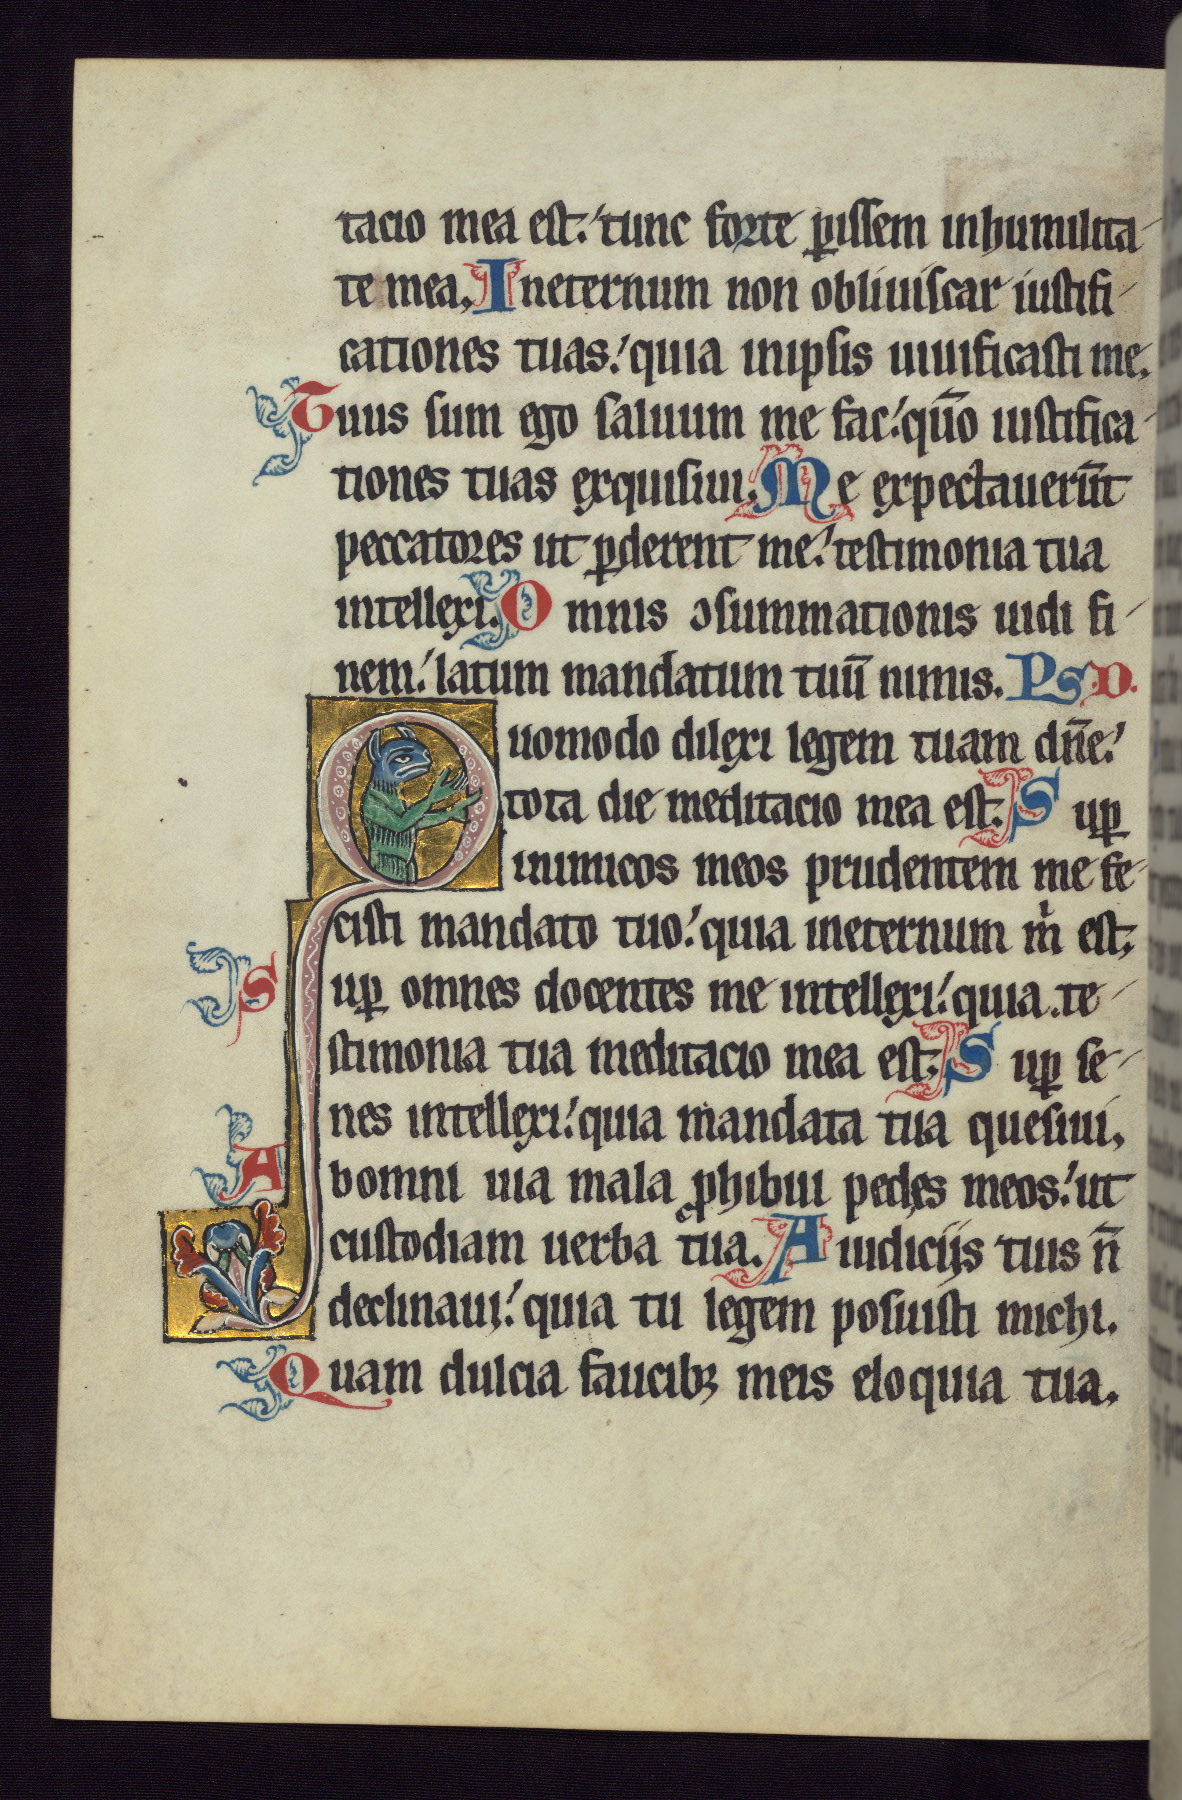 tacio mea est. tunc forte p̲issem inhumilita-
te mea. Ineternum non obliuiscar iustifi-
cationes tuas. quia inipsis uiuificasti me.
Tuus sum ego saluum me fac. qm̄o iustifica-
tiones tuas exquisiui. Me expectauerūt
peccatores ut p̲derent me. testimonia tua
intellexi. Omnis ↄsummationis uidi fi-
nem. latum mandatum tuū nimis. Ps. D.
Quomodo dilexi legem tuam dn̄e.
tota die meditacio mea est. Sup̲
inimicos meos prudentem me fe-
cisti mandato tuo. quia ineternum m̍ est.
Sup̲ omnes docentes me intellexi. quia te-
stimonia tua meditacio mea est. Sup̲ se-
nes intellexi. quia mandata tua quesiui.
Ab omni uia mala ꝓhibui pedes meos. ut
custodiam uerba tua. A iudicijs tuis n̄
declinaui. quia tu legem posuisti michi.
Quam dulcia faucibꝫ meis eloquia tua.